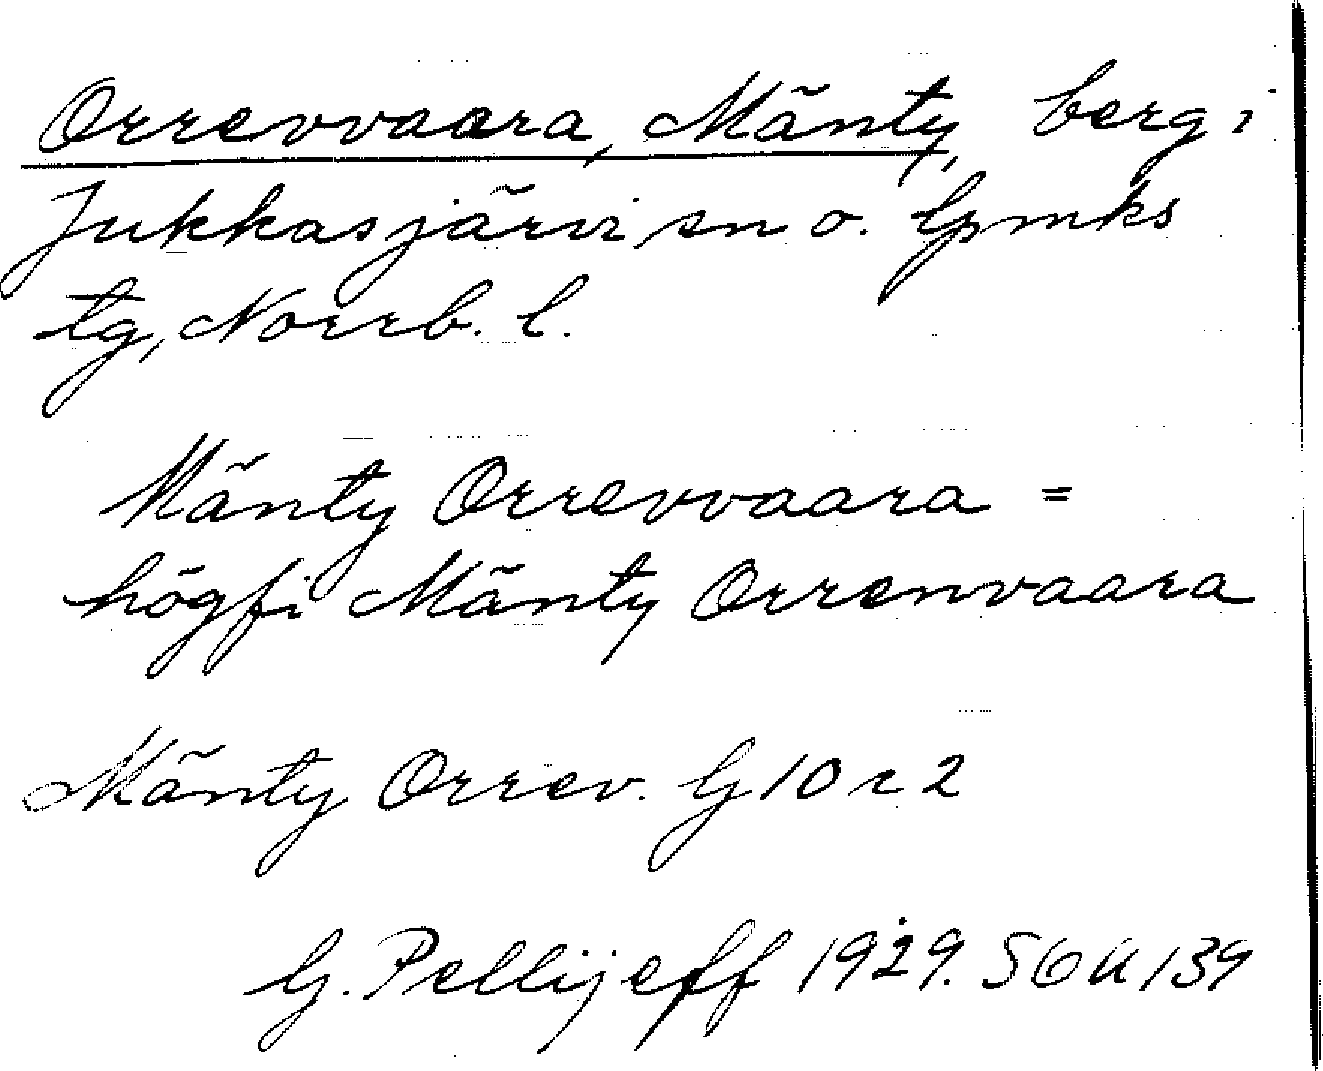 Orrevvaara, Mänty, berg i
Jukkasjärvi sn o. lpmks
tg, Norrb. l.
Mänty Orrevvaara =
högfi Mänty Orrenvaara
Mänty Orrev. G 10 r 2
G. Pellijeff 1929. SOU 139